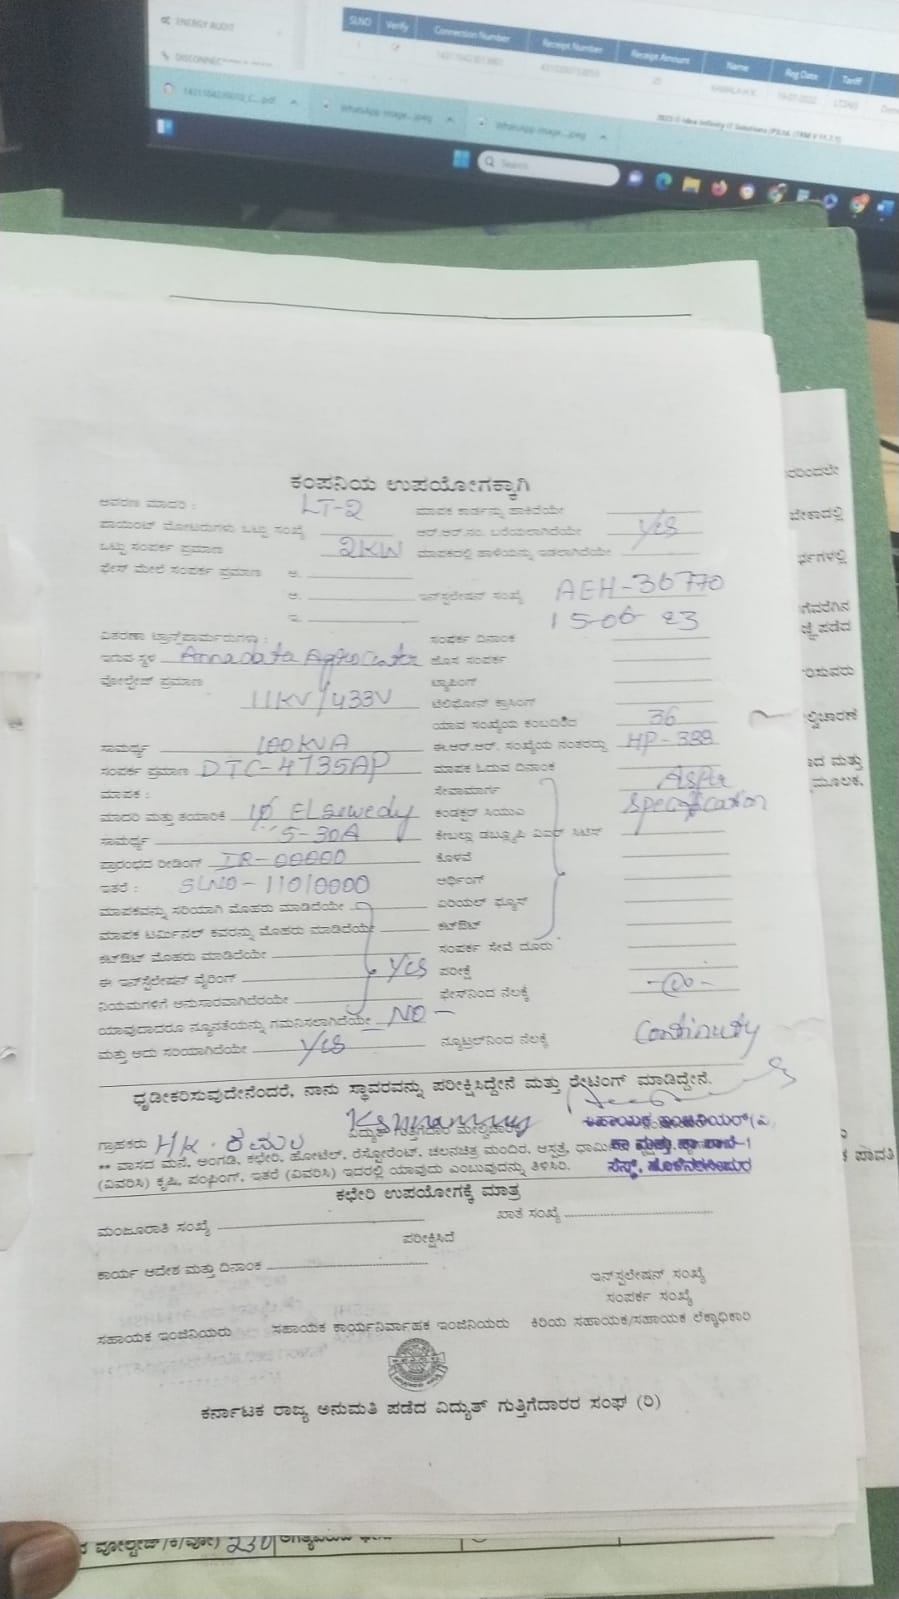 ENERGY AUDIT
SLNO Verify Connection Number Receipt Number Receipt Amount Name Reg Date Tariff
WhatsApp Image...jpeg WhatsApp Image...jpeg
Search
ಕಂಪನಿಯ ಉಪಯೋಗಕ್ಕಾಗಿ
ಆವರಣ ಮಾದರಿ : LT-2 ಮಾಪಕ ಕಾರ್ಡನ್ನು ಹಾಕಿದೆಯೇ
ಪಾಯಿಂಟ್ ಮೋಟರುಗಳು ಒಟ್ಟು ಸಂಖ್ಯೆ ಆರ್.ಆರ್.ನಂ. ಬರೆಯಲಾಗಿದೆಯೇ Yes
ಒಟ್ಟು ಸಂಪರ್ಕ ಪ್ರಮಾಣ 2KW ಮಾಪಕದಲ್ಲಿ ಹಾಳೆಯನ್ನು ಇಡಲಾಗಿದೆಯೇ
ಫೇಸ್ ಮೇಲೆ ಸಂಪರ್ಕ ಪ್ರಮಾಣ ಅ.
ಆ. ಇನ್‌ಸ್ಟಲೇಷನ್ ಸಂಖ್ಯೆ AEH-36770
ಇ. 15-06-23
ವಿತರಣಾ ಟ್ರಾನ್ಸ್‌ಫಾರ್ಮರುಗಳು : ಸಂಪರ್ಕ ದಿನಾಂಕ
ಇರುವ ಸ್ಥಳ Annadata Agrocenter ಹೊಸ ಸಂಪರ್ಕ
ವೋಲ್ಟೇಜ್ ಪ್ರಮಾಣ ಟ್ಯಾಪಿಂಗ್
11KV/433V ಟೆಲಿಫೋನ್ ಕ್ರಾಸಿಂಗ್
ಯಾವ ಸಂಖ್ಯೆಯ ಕಂಬದಿಂದ 36
ಸಾಮರ್ಥ್ಯ 100KVA ಈ.ಆರ್.ಆರ್. ಸಂಖ್ಯೆಯ ನಂತರದ್ದು HP-388
ಸಂಪರ್ಕ ಪ್ರಮಾಣ DTC-4735AP ಮಾಪಕ ಓದುವ ದಿನಾಂಕ
ಮಾಪಕ : ಸೇವಾಮಾರ್ಗ As Per
ಮಾದರಿ ಮತ್ತು ತಯಾರಿಕೆ 1φ ELsewedy ಕಂಡಕ್ಟರ್ ಸಿಯುಎ Specification
ಸಾಮರ್ಥ್ಯ 5-30A
ಪ್ರಾರಂಭದ ರೀಡಿಂಗ್ IR-00000 ಕೊಳವೆ
ಇತರೆ : SLNO-11010000 ಅರ್ಥಿಂಗ್
ಮಾಪಕವನ್ನು ಸರಿಯಾಗಿ ಮೊಹರು ಮಾಡಿದೆಯೇ ಏರಿಯಲ್ ಫ್ಯೂಸ್
ಮಾಪಕ ಟರ್ಮಿನಲ್ ಕವರನ್ನು ಮೊಹರು ಮಾಡಿದೆಯೇ ಕಟ್‌ಔಟ್
ಕಟ್‌ಔಟ್ ಮೊಹರು ಮಾಡಿದೆಯೇ ಸಂಪರ್ಕ ಸೇವೆ ದೂರು
ಈ ಇನ್‌ಸ್ಟಲೇಷನ್ ವೈರಿಂಗ್ Yes ಪರೀಕ್ಷೆ
ನಿಯಮಗಳಿಗೆ ಅನುಸಾರವಾಗಿದೆಯೇ ಫೇಸ್‌ನಿಂದ ನೆಲಕ್ಕೆ
ಯಾವುದಾದರೂ ನ್ಯೂನತೆಯನ್ನು ಗಮನಿಸಲಾಗಿದೆಯೇ NO
ಮತ್ತು ಅದು ಸರಿಯಾಗಿದೆಯೇ Yes ನ್ಯೂಟ್ರಲ್‌ನಿಂದ ನೆಲಕ್ಕೆ Continuty
ಧೃಡೀಕರಿಸುವುದೇನೆಂದರೆ, ನಾನು ಸ್ಥಾವರವನ್ನು ಪರೀಕ್ಷಿಸಿದ್ದೇನೆ ಮತ್ತು ರೇಟಿಂಗ್ ಮಾಡಿದ್ದೇನೆ.
ಸಹಾಯಕ ಇಂಜಿನಿಯರ್(ವಿ)
ಗ್ರಾಹಕರು HK. ಕಮಲ ವಿದ್ಯುತ್ ಗುತ್ತಿಗೆದಾರ
** ವಾಸದ ಮನೆ, ಅಂಗಡಿ, ಕಛೇರಿ, ಹೋಟೆಲ್, ರೆಸ್ಟೋರೆಂಟ್, ಚಲನಚಿತ್ರ ಮಂದಿರ, ಆಸ್ಪತ್ರೆ,
(ವಿವರಿಸಿ) ಕೃಷಿ, ಪಂಪಿಂಗ್, ಇತರೆ (ವಿವರಿಸಿ) ಇದರಲ್ಲಿ ಯಾವುದು ಎಂಬುವುದನ್ನು ತಿಳಿಸಿರಿ.
ಕಛೇರಿ ಉಪಯೋಗಕ್ಕೆ ಮಾತ್ರ
ಮಂಜೂರಾತಿ ಸಂಖ್ಯೆ ಖಾತೆ ಸಂಖ್ಯೆ
ಪರೀಕ್ಷಿಸಿದೆ
ಕಾರ್ಯ ಆದೇಶ ಮತ್ತು ದಿನಾಂಕ
ಇನ್‌ಸ್ಟಲೇಷನ್ ಸಂಖ್ಯೆ
ಸಂಪರ್ಕ ಸಂಖ್ಯೆ
ಸಹಾಯಕ ಇಂಜಿನಿಯರು ಸಹಾಯಕ ಕಾರ್ಯನಿರ್ವಾಹಕ ಇಂಜಿನಿಯರು ಕಿರಿಯ ಸಹಾಯಕ/ಸಹಾಯಕ ಲೆಕ್ಕಾಧಿಕಾರಿ
ಕರ್ನಾಟಕ ರಾಜ್ಯ ಅನುಮತಿ ಪಡೆದ ವಿದ್ಯುತ್ ಗುತ್ತಿಗೆದಾರರ ಸಂಘ (ರಿ)
230